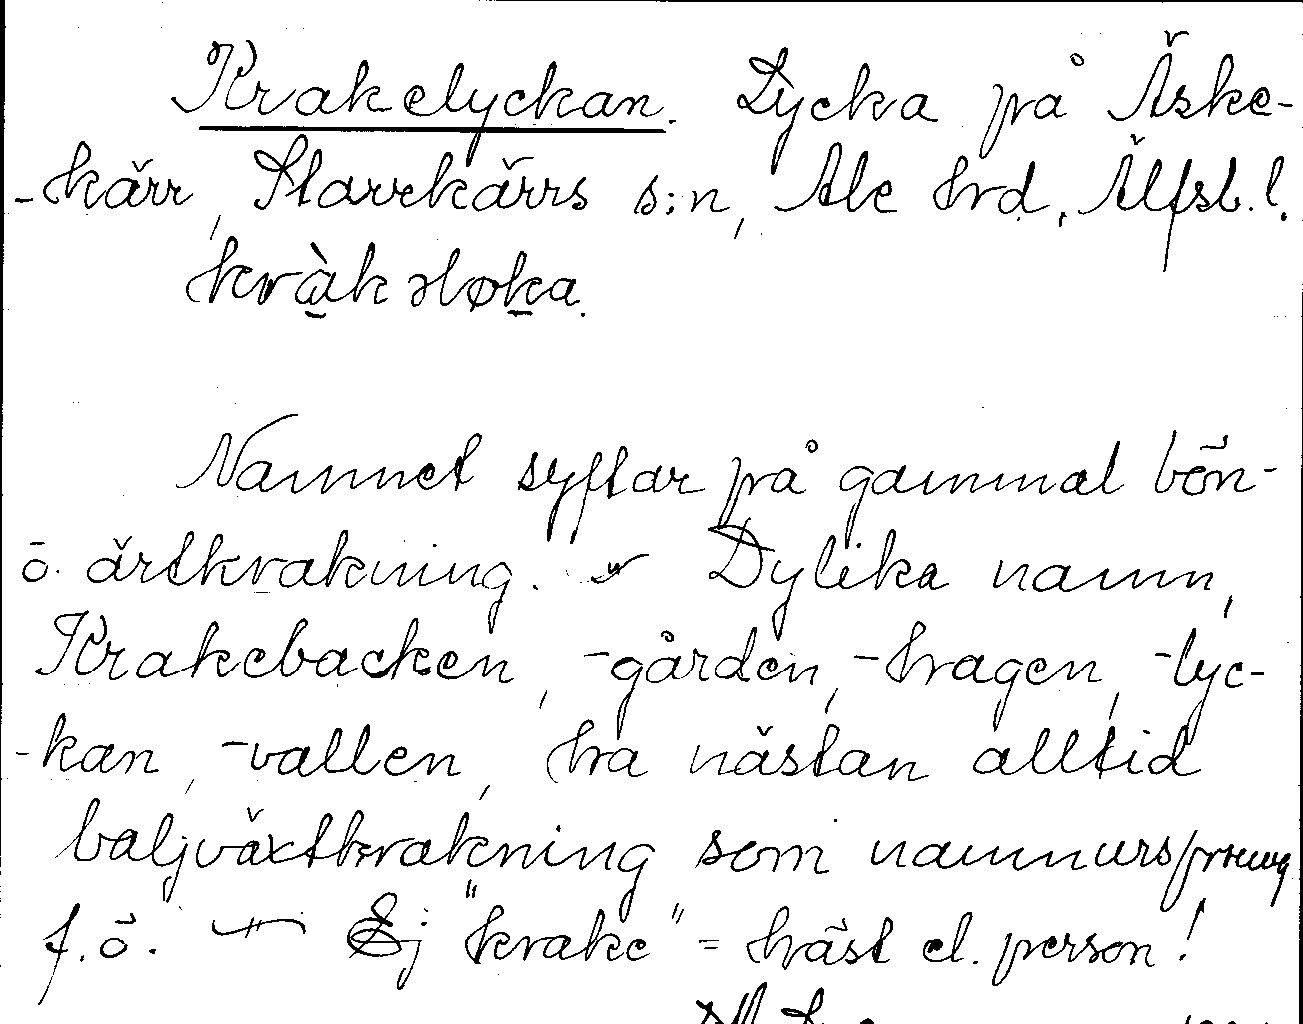 Krakelyckan. Lycka på Äske-
-kärr, Starrkärrs s:n, Ale hrd, Älfsb. l.
kràkəløka.
Namnet syftar på gammal bön-
o. ärtkrakning. Dylika namn,
Krakebacken, -gården, -hagen, -lyc-
-kan, -vallen, ha nästan alltid
baljväxtkrakning som namnursprung
f.ö. — Ej "krake" = häst el. person!